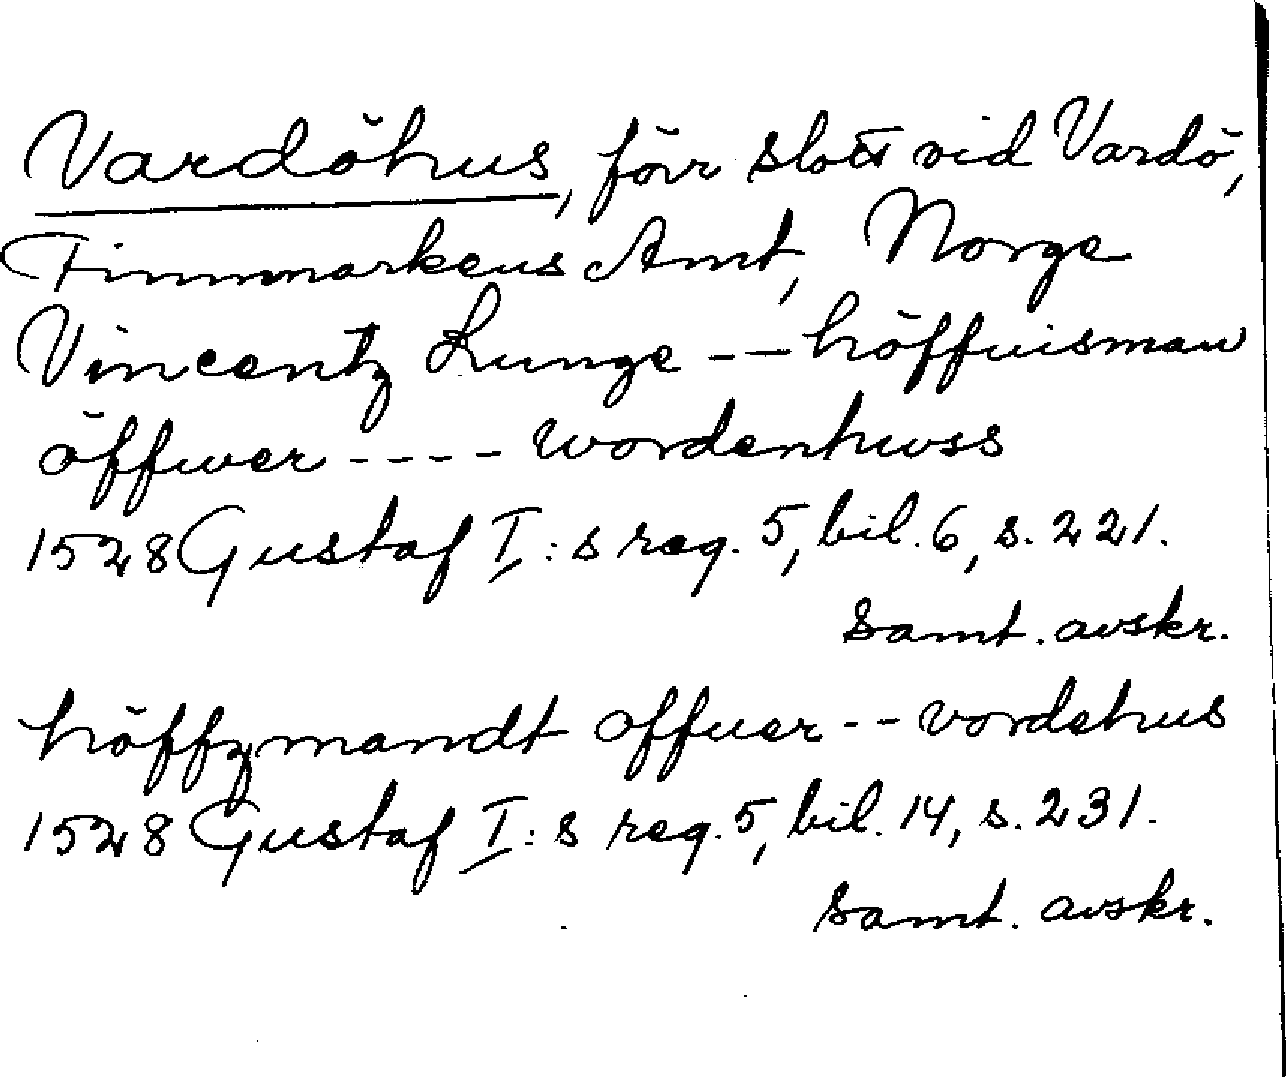 Vardöhus, förr slott vid Vardö,
Finnmarkens Amt, Norge
Vincentz Lunge -- höffuisman
öffwer ---- wordenhwss
1528 Gustaf I:s reg. 5, bil. 6, s. 221.
samt. avskr.
höffzmandt offuer -- vordehus
1528 Gustaf I:s reg. 5, bil. 14, s. 231.
samt. avskr.